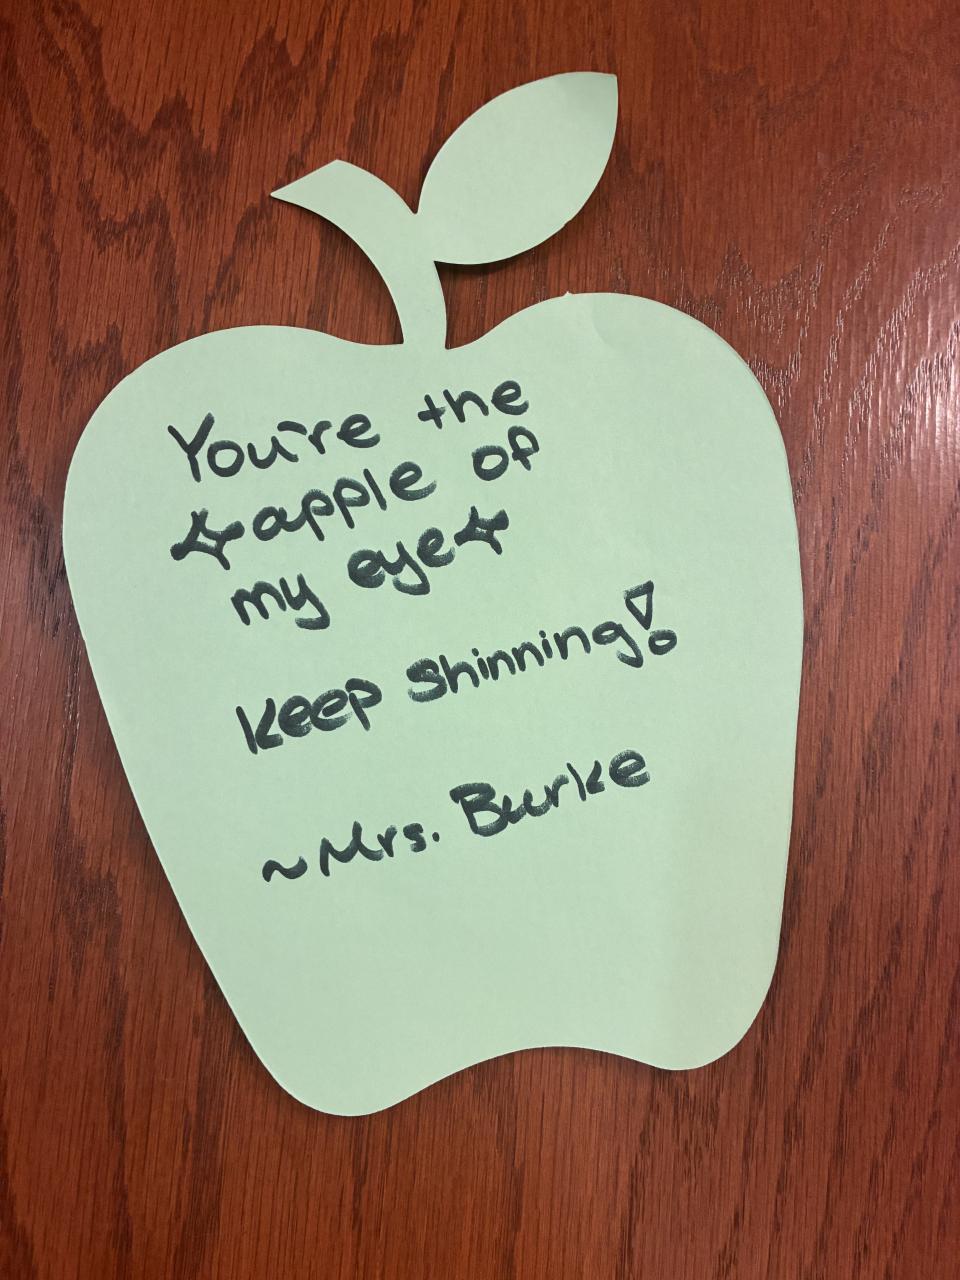 You're the
✧apple of
my eye✧
Keep Shinning!
~Mrs. Burke